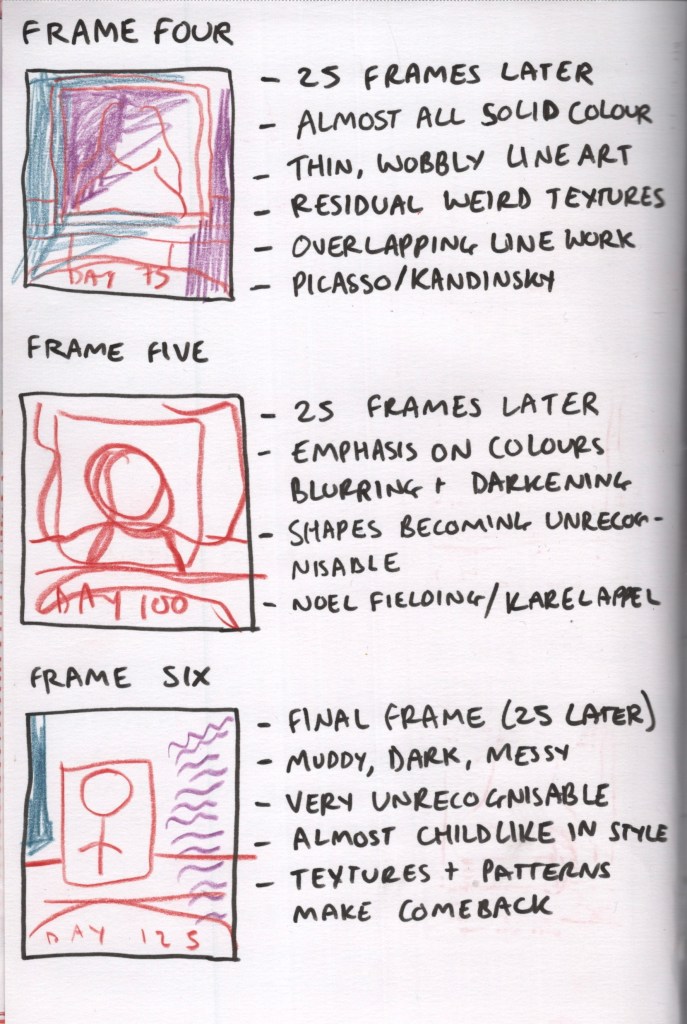 FRAME FOUR
- 25 FRAMES LATER
- ALMOST ALL SOLID COLOUR
- THIN, WOBBLY LINE ART
- RESIDUAL WEIRD TEXTURES
- OVERLAPPING LINE WORK
- PICASSO/KANDINSKY
DAY 75
FRAME FIVE
- 25 FRAMES LATER
- EMPHASIS ON COLOURS
BLURRING + DARKENING
- SHAPES BECOMING UNRECOG-
NISABLE
- NOEL FIELDING/KAREL APPEL
DAY 100
FRAME SIX
- FINAL FRAME (25 LATER)
- MUDDY, DARK, MESSY
- VERY UNRECOGNISABLE
- ALMOST CHILDLIKE IN STYLE
- TEXTURES + PATTERNS
MAKE COMEBACK
DAY 125